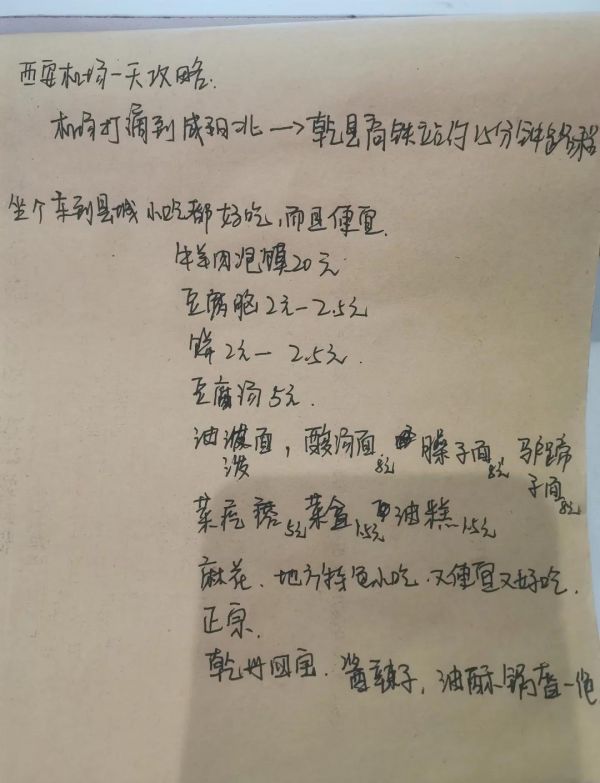 西安机场一天攻略.
机场打滴到咸阳北→乾县高铁站约15分钟路程
坐个车到县城小吃都好吃,而且便宜.
牛羊肉泡馍20元
豆腐脑2元—2.5元
饼2元—2.5元.
豆腐汤5元.
油泼面,酸汤面8元 臊子面8元 驴蹄子面8元
菜疙瘩5元 菜盒1.5元 油糕1.5元
麻花、地方特色小吃.又便宜又好吃.
正宗.
乾州四宝.酱辣子,油酥锅盔一绝